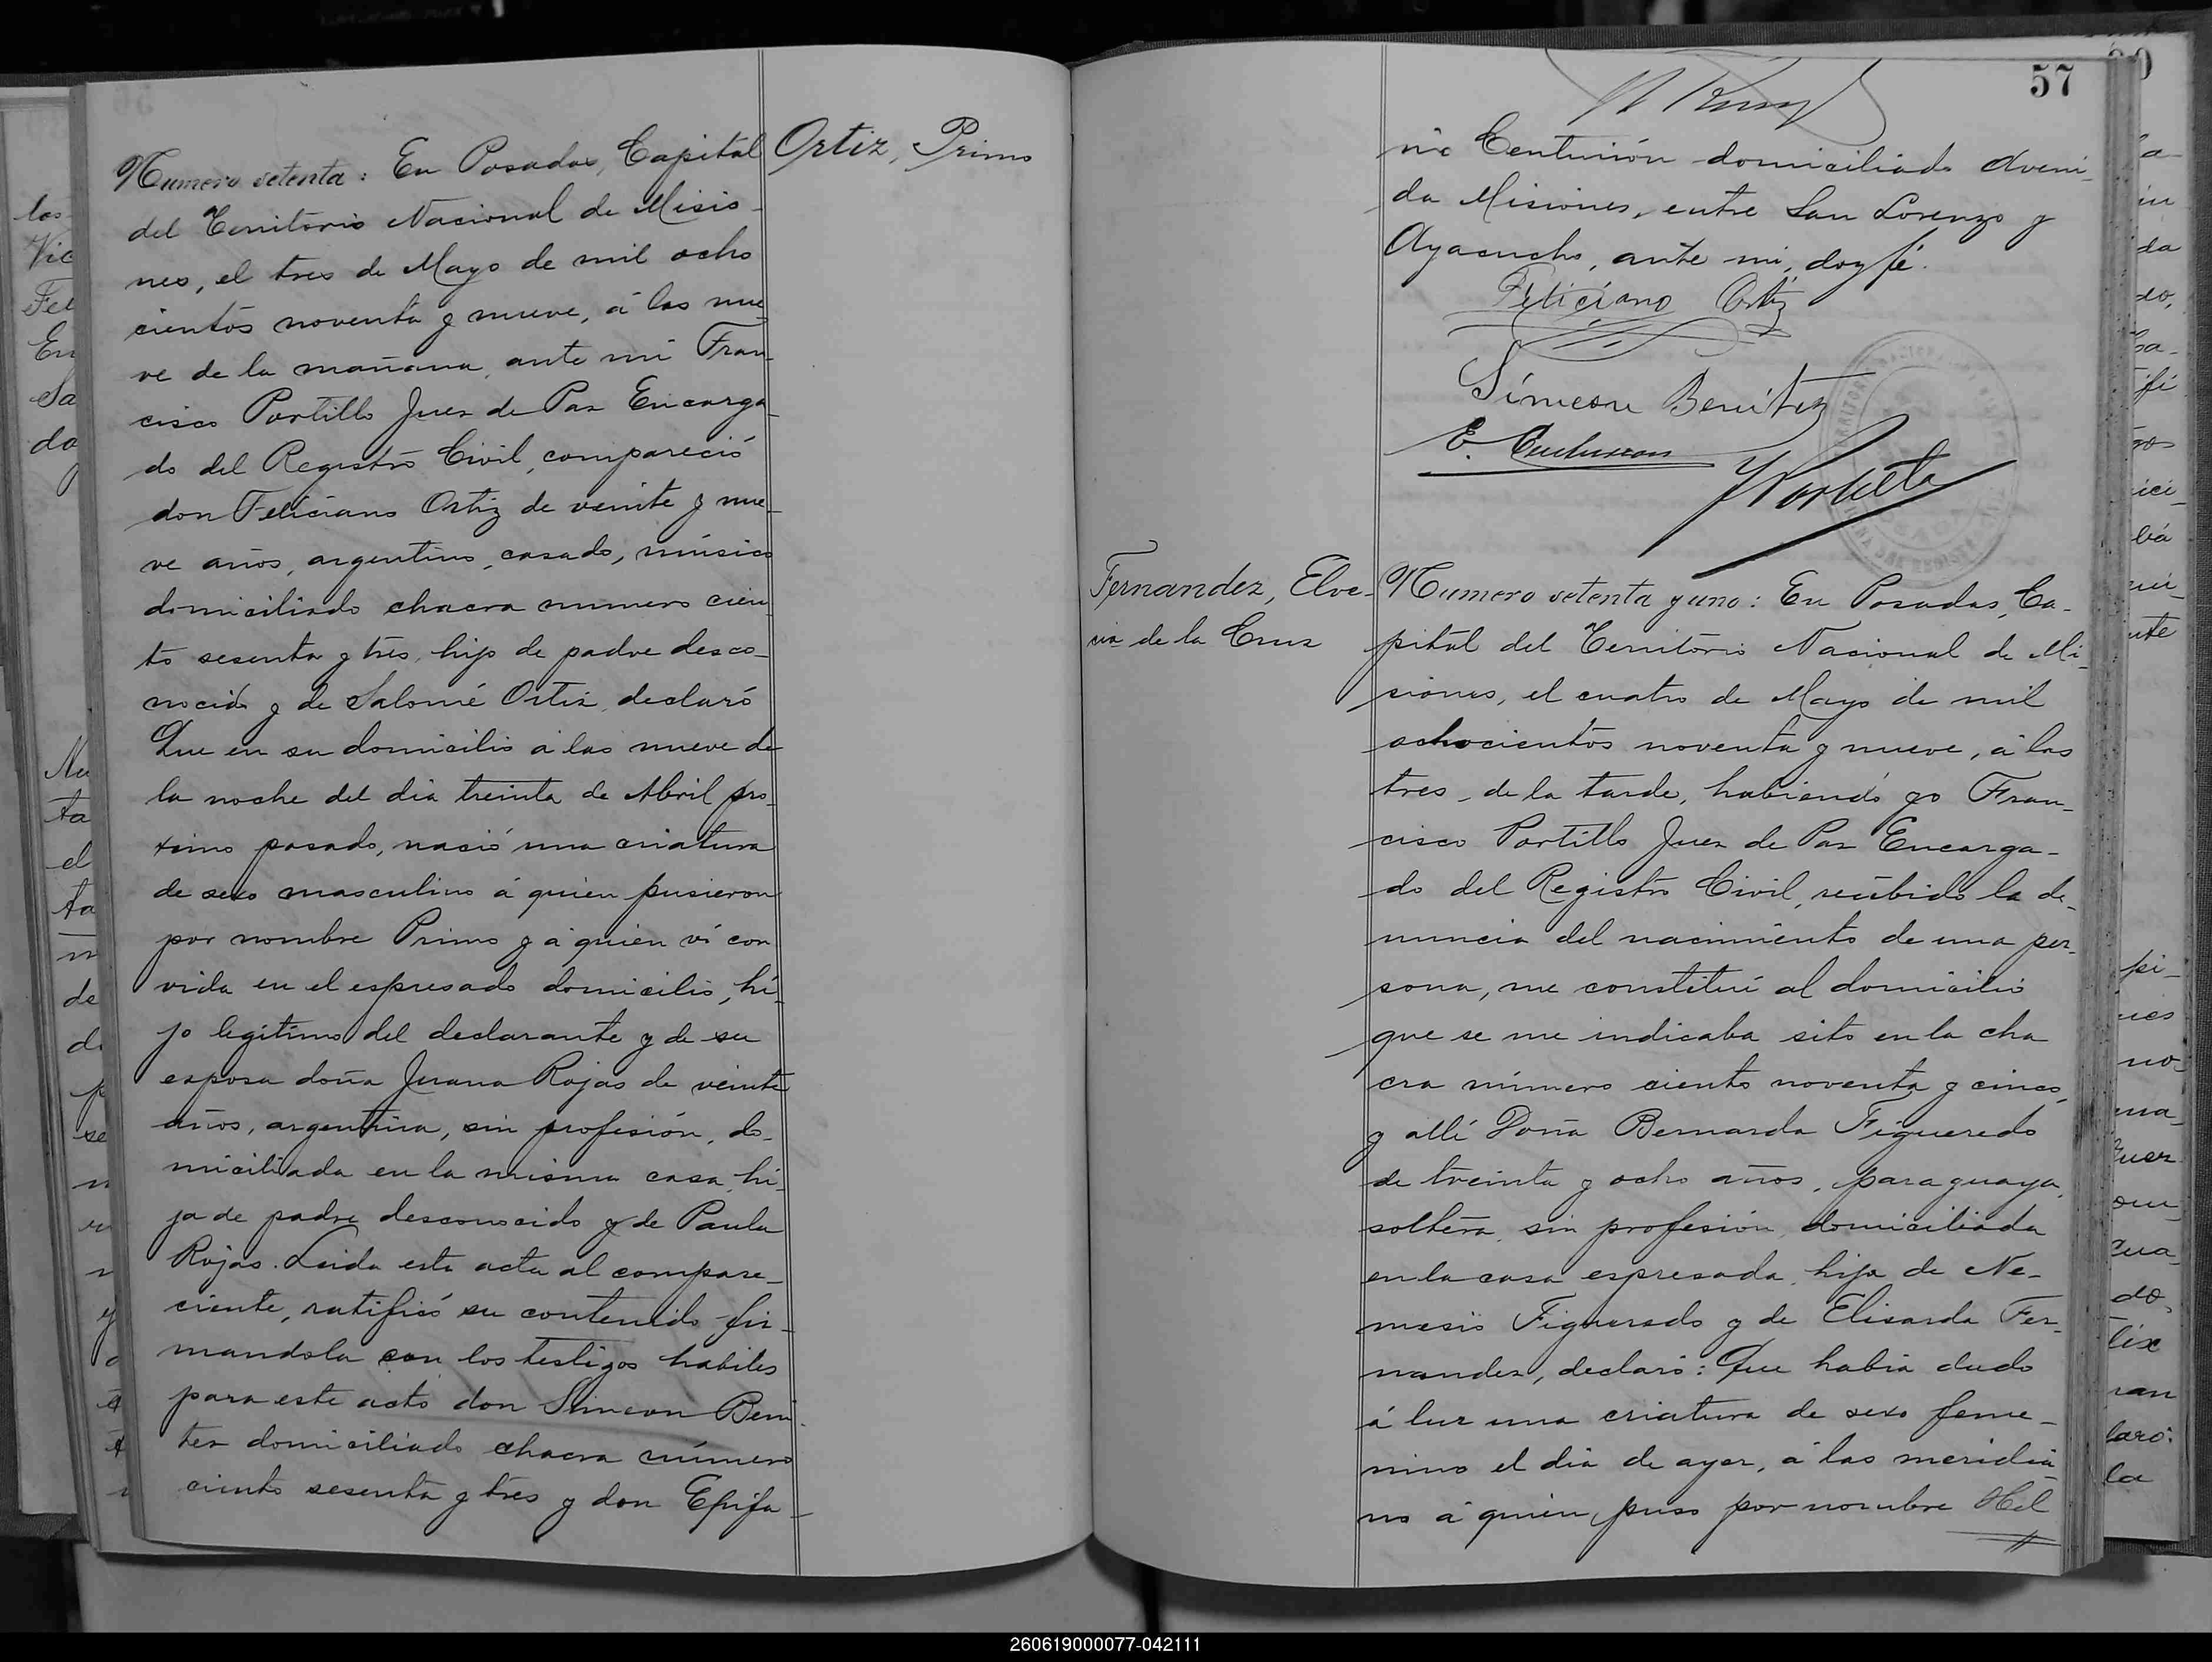 Numero setenta: En Posadas, Capital
del Territorio Nacional de Misio-
nes, el tres de Mayo de mil ocho
cientos noventa y nueve, á las nue-
ve de la mañana, ante mi Fran-
cisco Portillo Juez de Paz Encarga-
do del Registro Civil, compareció
don Feliciano Ortiz de veinte y nue-
ve años, argentino, casado, músico
domiciliado chacra numero cien-
to sesenta y tres, hijo de padre desco-
nocido y de Salomé Ortiz, declaró
Que en su domicilio a las nueve de
la noche del dia treinta de Abril pro-
ximo pasado, nació una criatura
de sexo masculino á quien pusieron
por nombre Primo y a quien ví con
vida en el espresado domicilio, hi-
jo legitimo del declarante y de su
esposa doña Juana Rojas de veinte
años, argentina, sin profesión, do-
miciliada en la misma casa, hi-
ja de padre desconocido y de Paula
Rojas. Leida esta acta al compare-
ciente, ratificó su contenido fir-
mandola con los testigos habiles
para este acto don Simeon Beni-
tez domiciliado chacra número
ciento sesenta y tres y don Epifa-
Ortiz, Primo
57
nio Centurión domiciliado Aveni-
da Misiones, entre San Lorenzo y
Ayacucho, ante mi, doy fé.
Feliciano Ortiz
Símeon Benítez
E. Centurion
F Portillo
Fernandez, Elve-
cia de la Cruz
Numero setenta y uno: En Posadas, Ca-
pital del Territorio Nacional de Mi-
siones, el cuatro de Mayo de mil
ochocientos noventa y nueve, á las
tres, de la tarde, habiendo yo Fran-
cisco Portillo Juez de Paz Encarga-
do del Registro Civil, recibido la de-
nuncia del nacimiento de una per-
sona, me constituí al domicilio
que se me indicaba sito en la cha
cra número ciento noventa y cinco,
y allí Doña Bernarda Figueredo
de treinta y ocho años, paraguaya,
soltera, sin profesión, domiciliada
en la casa espresada, hija de Ne-
mesio Figueredo y de Elisarda Fer-
nandez, declaró: Que habia dado
á luz una criatura de sexo feme-
nino el dia de ayer, á las meridia-
no á quien puso por nombre Hel
260619000077-042111